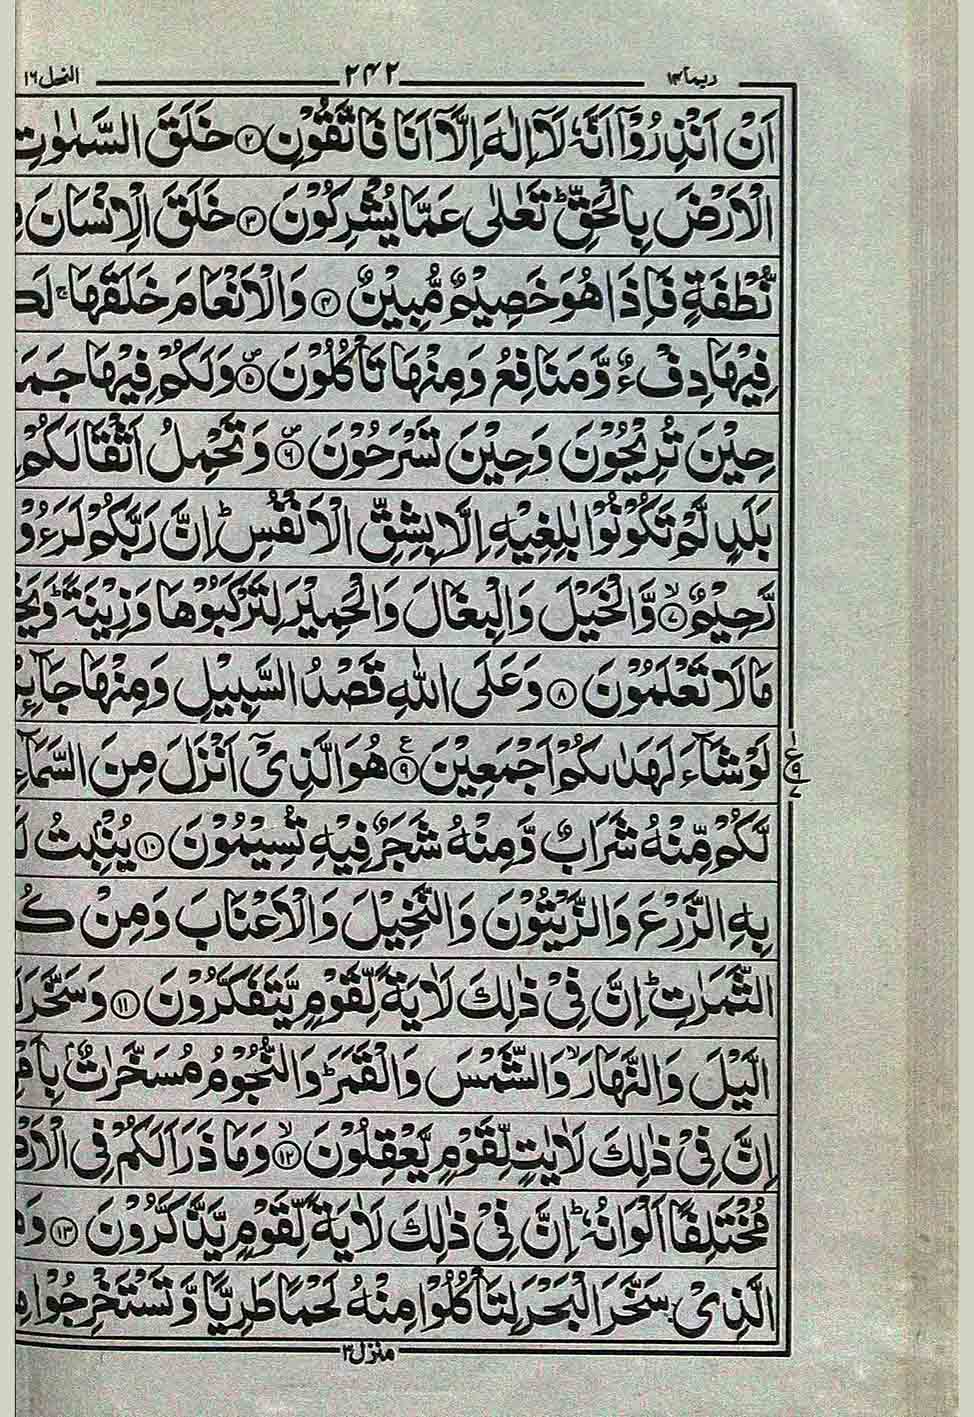 النحل ١٦ ٢٤٢ ربما ١٤
اَنْ اَنْذِرُوْۤا اَنَّهٗ لَاۤ اِلٰهَ اِلَّاۤ اَنَا فَاتَّقُوْنِ ﴿۲﴾ خَلَقَ السَّمٰوٰتِ
الْاَرْضَ بِالْحَقِّ ؕ تَعٰلٰى عَمَّا يُشْرِكُوْنَ ﴿۳﴾ خَلَقَ الْاِنْسَانَ
نُّطْفَةٍ فَاِذَا هُوَ خَصِيْمٌ مُّبِيْنٌ ﴿۴﴾ وَالْاَنْعَامَ خَلَقَهَا ۚ
فِيْهَا دِفْءٌ وَّمَنَافِعُ وَمِنْهَا تَاْكُلُوْنَ ﴿۵﴾ وَلَكُمْ فِيْهَا
حِيْنَ تُرِيْحُوْنَ وَحِيْنَ تَسْرَحُوْنَ ﴿۶﴾ وَتَحْمِلُ اَثْقَالَكُمْ
بَلَدٍ لَّمْ تَكُوْنُوْا بٰلِغِيْهِ اِلَّا بِشِقِّ الْاَنْفُسِ ؕ اِنَّ رَبَّكُمْ لَرَءُوْ
رَّحِيْمٌ ﴿۷﴾ وَّالْخَيْلَ وَالْبِغَالَ وَالْحَمِيْرَ لِتَرْكَبُوْهَا وَزِيْنَةً ؕ
مَا لَا تَعْلَمُوْنَ ﴿۸﴾ وَعَلَى اللّٰهِ قَصْدُ السَّبِيْلِ وَمِنْهَا جَآئِرٌ
لَوْ شَآءَ لَهَدٰىكُمْ اَجْمَعِيْنَ ﴿۹﴾ هُوَ الَّذِيْۤ اَنْزَلَ مِنَ السَّمَآءِ
لَّكُمْ مِّنْهُ شَرَابٌ وَّمِنْهُ شَجَرٌ فِيْهِ تُسِيْمُوْنَ ﴿۱۰﴾ يُنْۢبِتُ
بِهِ الزَّرْعَ وَالزَّيْتُوْنَ وَالنَّخِيْلَ وَالْاَعْنَابَ وَمِنْ
الثَّمَرٰتِ ؕ اِنَّ فِيْ ذٰلِكَ لَاٰيَةً لِّقَوْمٍ يَّتَفَكَّرُوْنَ ﴿۱۱﴾ وَسَخَّرَ
الَّيْلَ وَالنَّهَارَ ۙ وَالشَّمْسَ وَالْقَمَرَ ؕ وَالنُّجُوْمُ مُسَخَّرٰتٌۢ
اِنَّ فِيْ ذٰلِكَ لَاٰيٰتٍ لِّقَوْمٍ يَّعْقِلُوْنَ ﴿۱۲﴾ وَمَا ذَرَاَ لَكُمْ فِي
مُخْتَلِفًا اَلْوَانُهٗ ؕ اِنَّ فِيْ ذٰلِكَ لَاٰيَةً لِّقَوْمٍ يَّذَّكَّرُوْنَ ﴿۱۳﴾
الَّذِيْ سَخَّرَ الْبَحْرَ لِتَاْكُلُوْا مِنْهُ لَحْمًا طَرِيًّا وَّتَسْتَخْرِجُوْا
منزل ۳